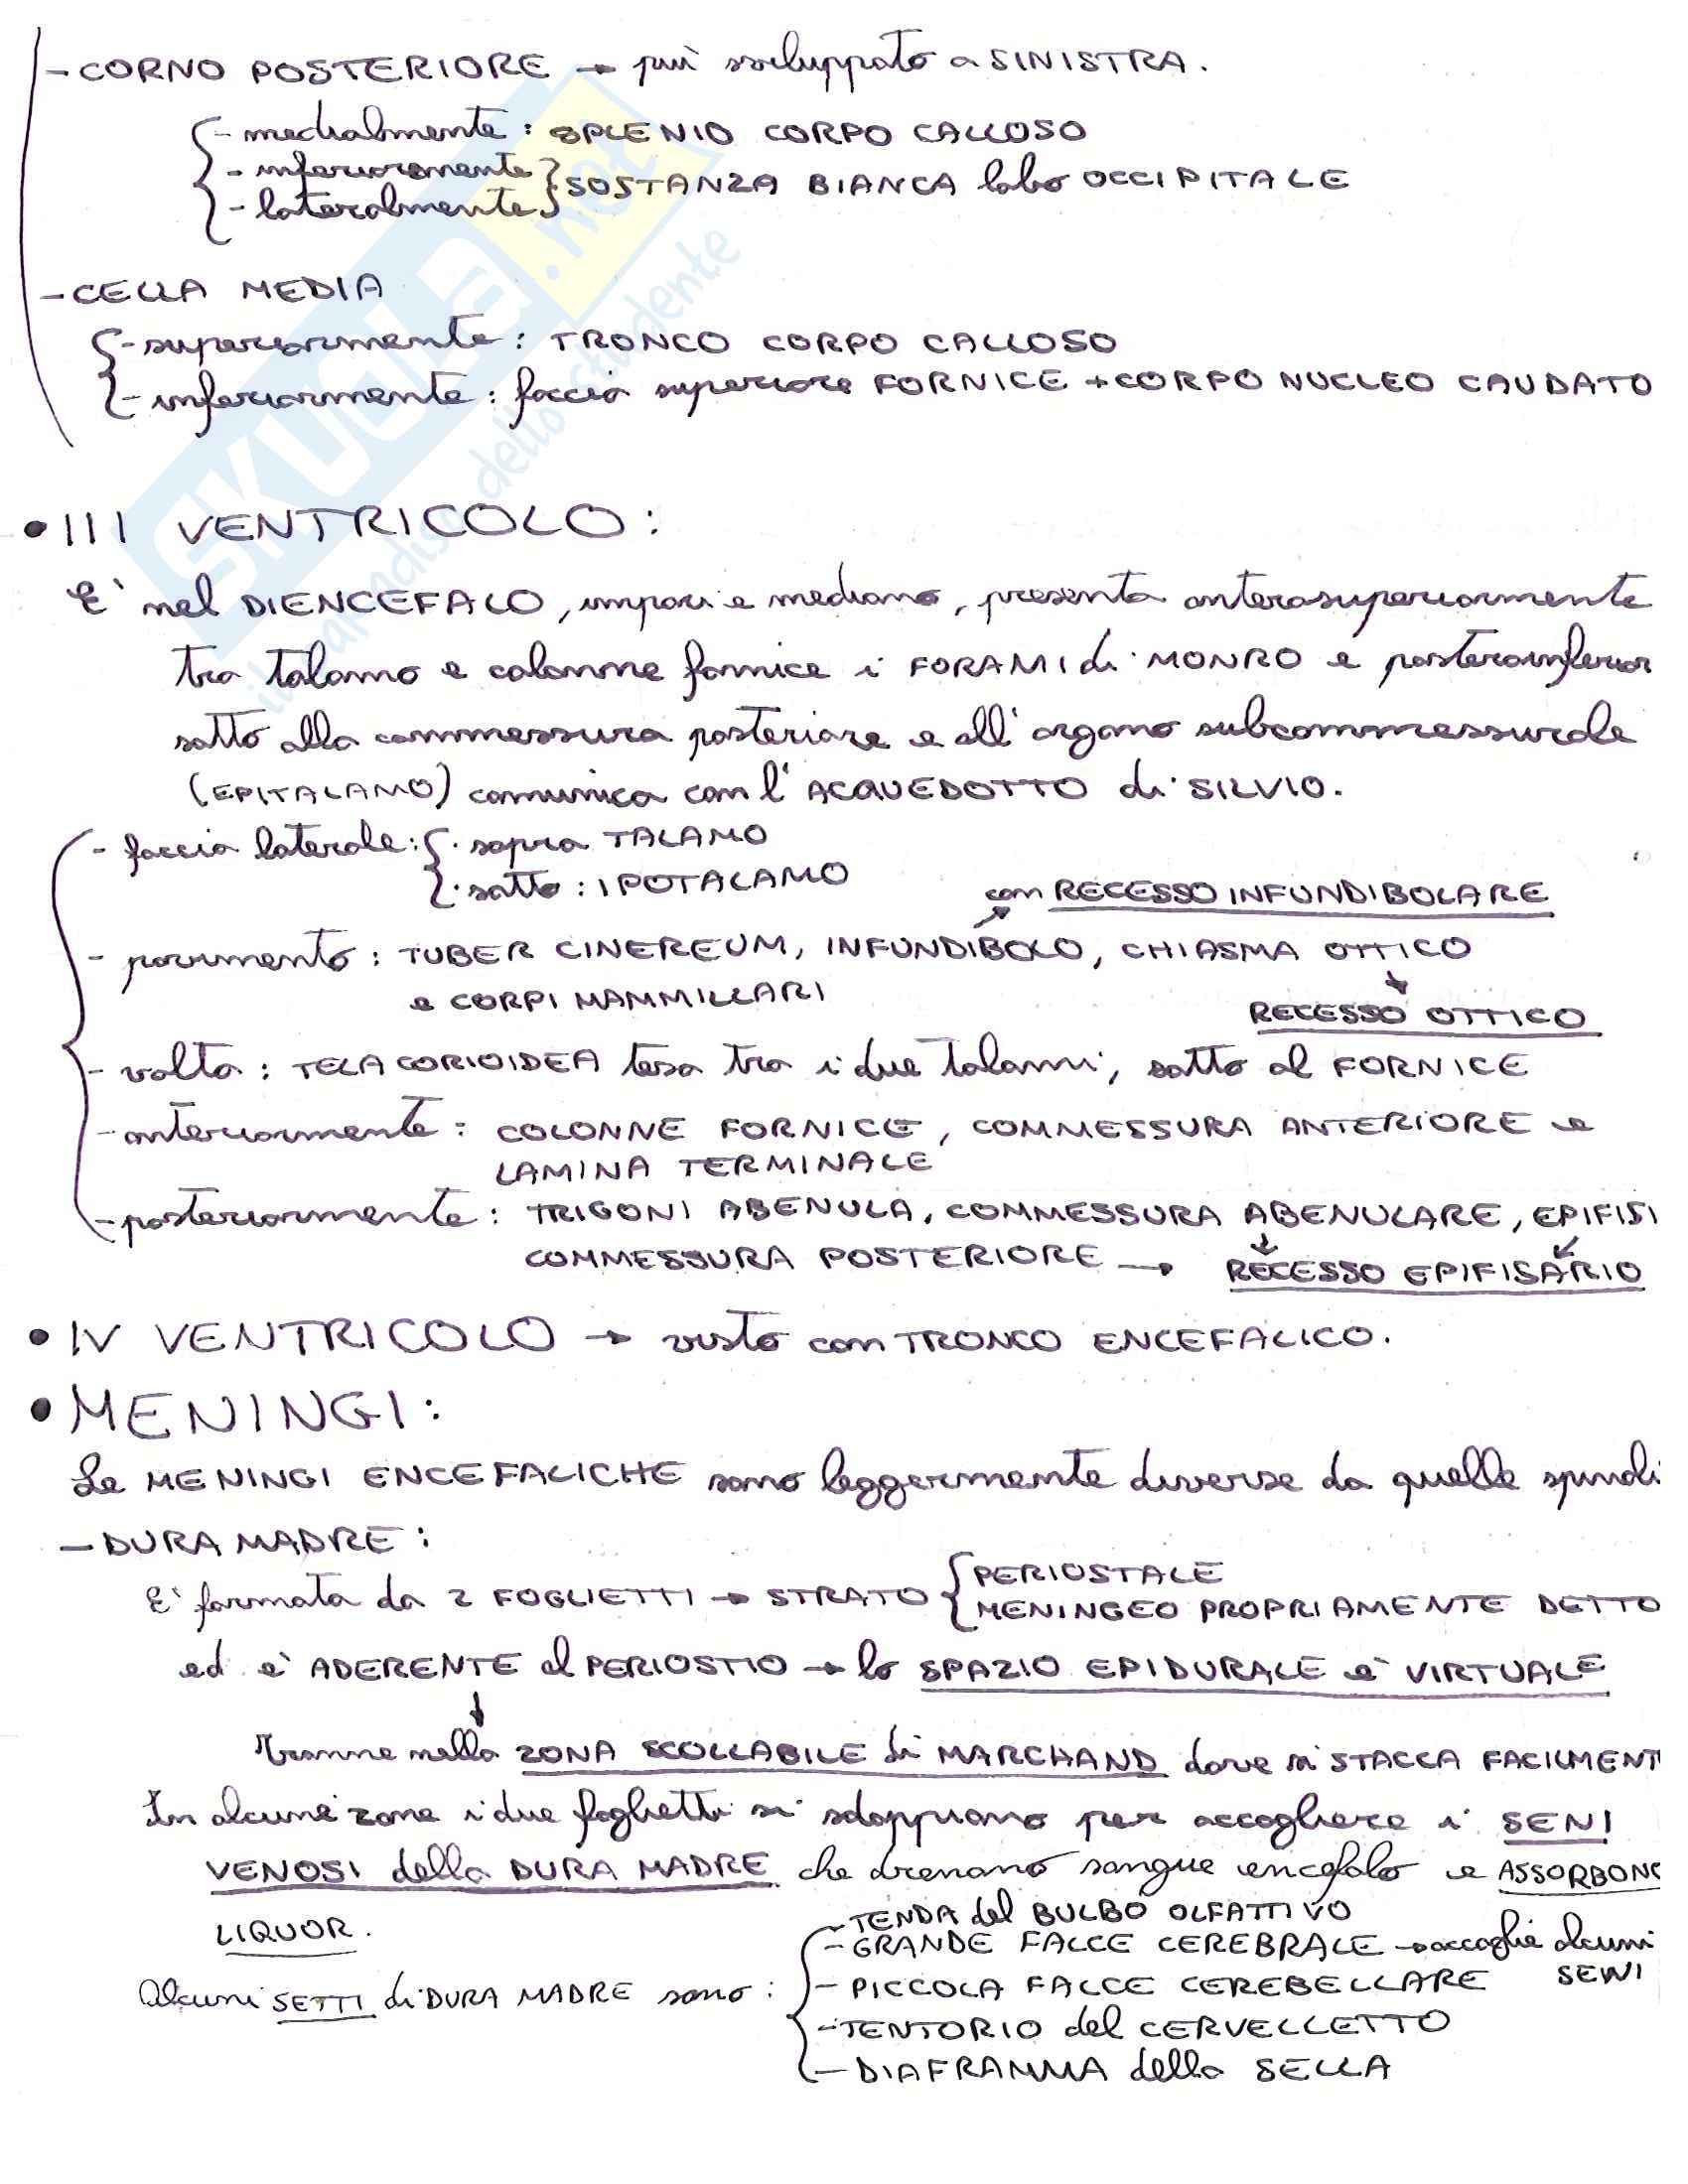 - CORNO POSTERIORE → più sviluppato a SINISTRA.
- medialmente: SPLENIO CORPO CALLOSO
- inferiormente
- lateralmente } SOSTANZA BIANCA lobo OCCIPITALE
- CELLA MEDIA
- superiormente: TRONCO CORPO CALLOSO
- inferiormente: faccia superiore FORNICE + CORPO NUCLEO CAUDATO
• III VENTRICOLO:
E' nel DIENCEFALO, impari e mediano, presenta anterosuperiormente
tra talamo e colonne fornice i FORAMI di MONRO e posteroinferior
sotto alla commessura posteriore e all'organo subcommessurale
(EPITALAMO) comunica con l'ACQUEDOTTO di SILVIO.
- faccia laterale: { · sopra TALAMO
· sotto: IPOTALAMO
con RECESSO INFUNDIBOLARE
- pavimento: TUBER CINEREUM, INFUNDIBOLO, CHIASMA OTTICO
e CORPI MAMMILLARI
RECESSO OTTICO
- volta: TELA CORIOIDEA tesa tra i due talami, sotto al FORNICE
- anteriormente: COLONNE FORNICE, COMMESSURA ANTERIORE e
LAMINA TERMINALE
- posteriormente: TRIGONI ABENULA, COMMESSURA ABENULARE, EPIFISI
COMMESSURA POSTERIORE → RECESSO EPIFISARIO
• IV VENTRICOLO → visto con TRONCO ENCEFALICO.
• MENINGI:
Le MENINGI ENCEFALICHE sono leggermente diverse da quelle spinali
- DURA MADRE:
E' formata da 2 FOGLIETTI → STRATO { PERIOSTALE
MENINGEO PROPRIAMENTE DETTO
ed è ADERENTE al PERIOSTIO → lo SPAZIO EPIDURALE è VIRTUALE
tranne nella ZONA SCOLLABILE di MARCHAND dove si STACCA FACILMENT
In alcune zone i due foglietti si sdoppiano per accogliere i SENI
VENOSI della DURA MADRE che drenano sangue encefalo e ASSORBONO
LIQUOR.
- TENDA del BULBO OLFATTIVO
- GRANDE FALCE CEREBRALE → accoglie alcuni SENI
Alcuni SETTI di DURA MADRE sono: - PICCOLA FALCE CEREBELLARE
- TENTORIO del CERVELLETTO
- DIAFRAMMA della SELLA
SKUOLA.net
il paradiso dello studente